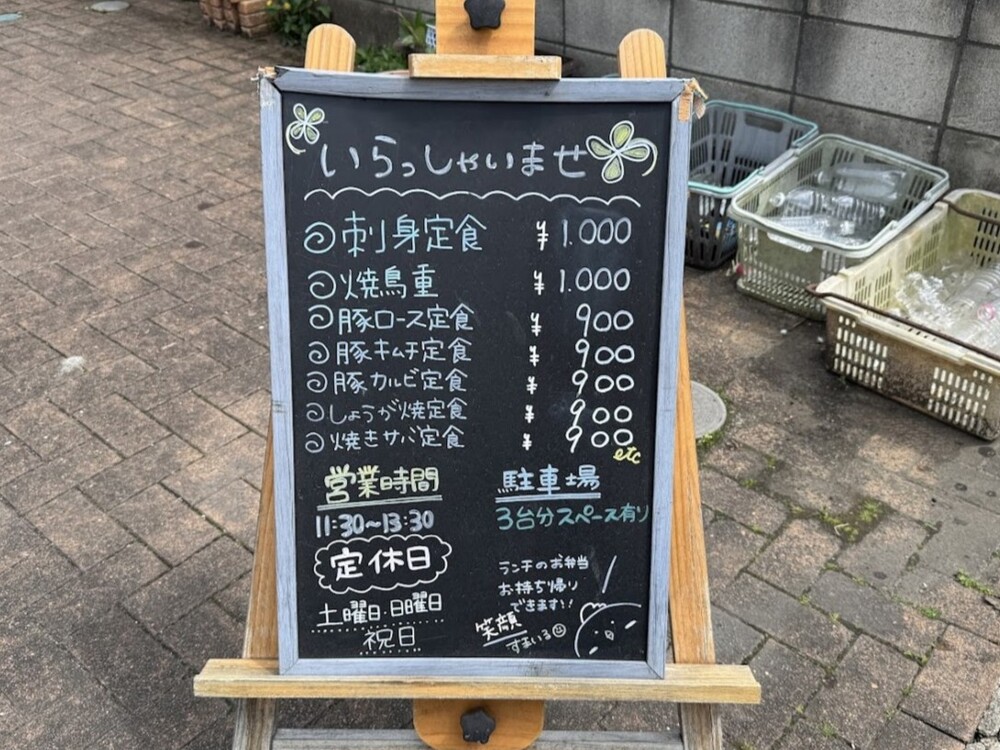 いらっしゃいませ
刺身定食 ¥1.000
焼鳥重 ¥1.000
豚ロース定食 ¥900
豚キムチ定食 ¥900
豚カルビ定食 ¥900
しょうが焼定食 ¥900
焼きサバ定食 ¥900
etc
営業時間
11:30~13:30
定休日
土曜日・日曜日
祝日
駐車場
3台分スペース有り
ランチのお弁当
お持ち帰り
できます!!
笑顔
すまいる